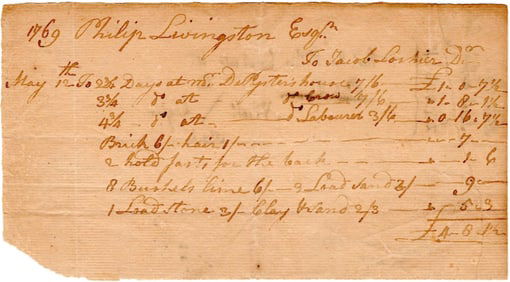 1769 Philip Livingston Esqr.
To Jacob Loshier Dr.
May 12th To 2¾ Days at Mr. DePysters house 7/6 £1-0-7½
3¾ do at do 7/6 " 1-8-1½
4¾ do at do Labourer 3/6 " 0-16-7½
Brick 6/- hair 1/- " 7-
2 hold fasts for the back " 1-6
8 Bushels lime 6/- 2 Load sand 3/- 9-
1 Load Stone 3/- Clay & Sand 2/3 " 5-3
£4-8-1½